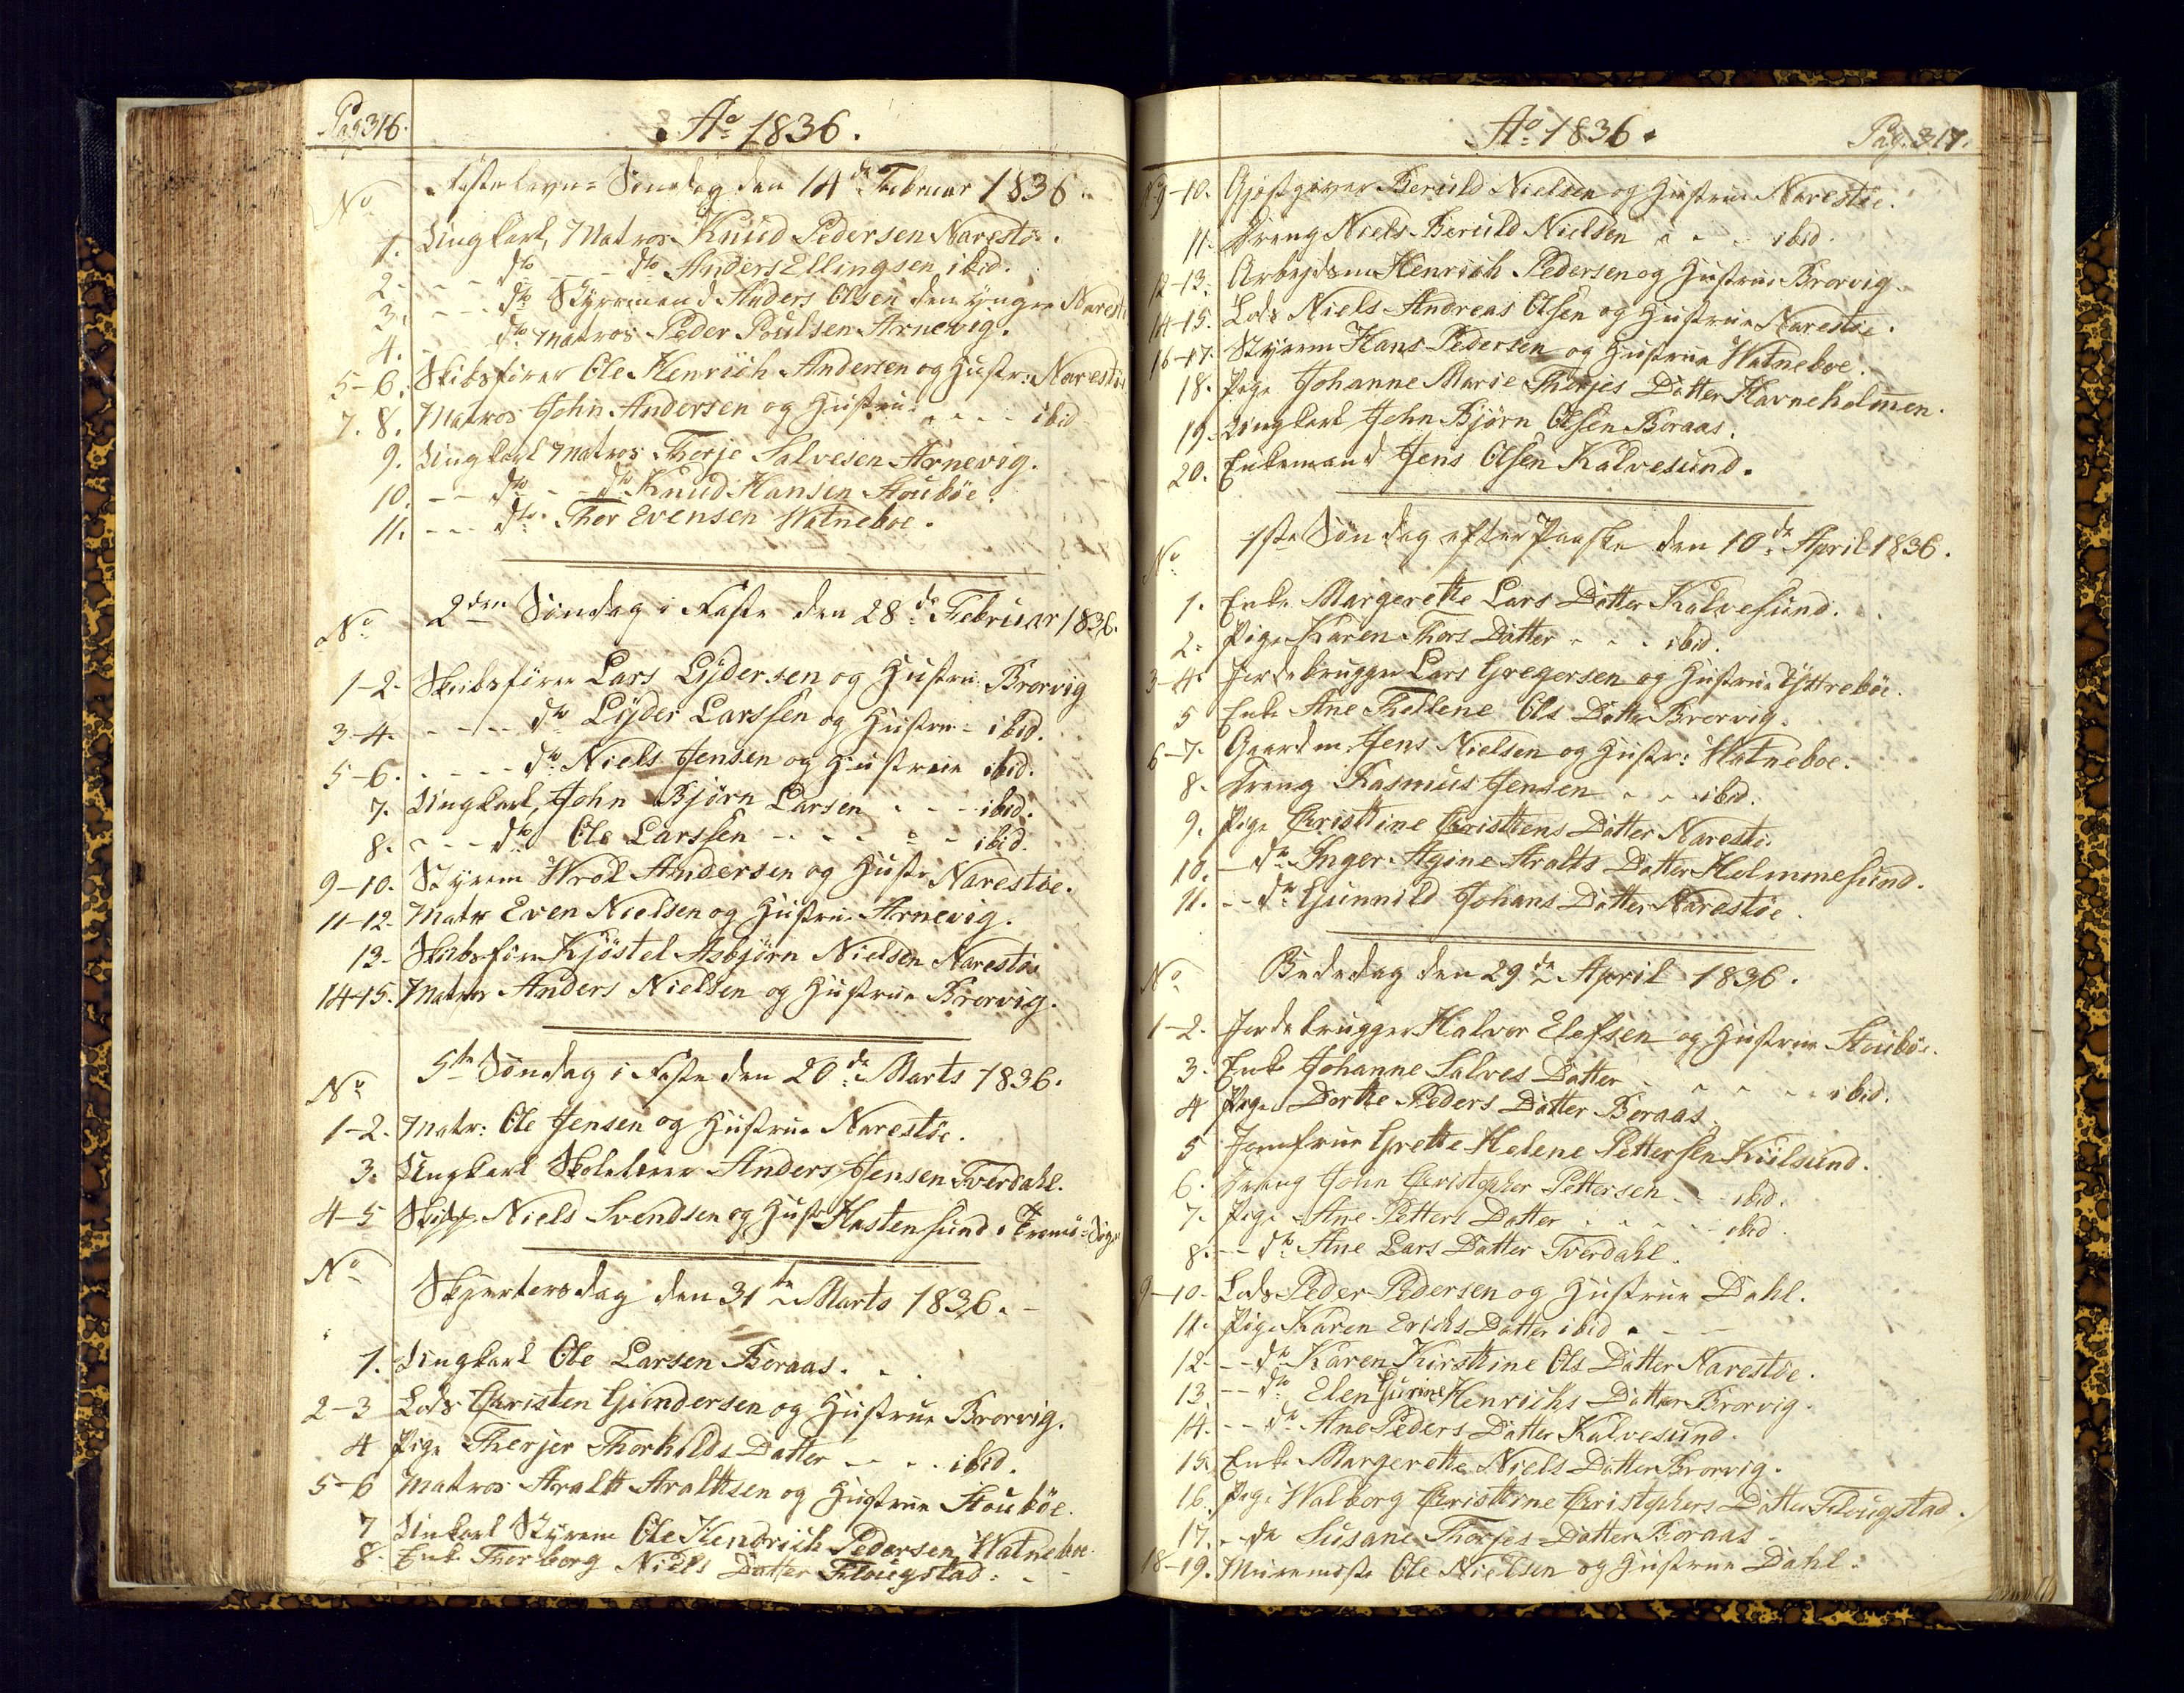 Pag 316.
Ao 1836.
No Fastelavns Søndag den 14de Februar 1836.
1. Ungkarl, Matros Knud Pedersen Narestø.
2. - - dto - - dto Anders Ellingsen ibid.
3. - - - dto Styrmand Anders Olsen den yngre Narestø
4. dto Matros Peder Poulsen Arnevig.
5-6. Skibsfører Ole Henrich Andersen og Hustr: Narestøe
7. 8. Matros John Andersen og Hustru - - - - ibid
9. Ungkarl Matros Therje Salvesen Arnevig.
10. - - dto - - dto Knud Hansen Stoubøe.
11. - - dto Thor Evensen Watneboe.
No 2den Søndag i Faste den 28de Februar 1836.
1-2. Skibsfører Lars Lydersen og Hustru Brorvig
3-4. - - - - dto Lyder Larssen og Hustru - ibid.
5-6. - - - - dto Niels Jensen og Hustrue ibid.
7. Ungkarl, John Bjørn Larsen - - - ibid.
8. - - - dto Ole Larssen - - - - - ibid.
9-10. Styrm Wrol Andersen og Hustr Narestøe.
11-12. Matr Even Nielsen og Hustru Arnevig.
13. Skibsfører Kjøstel Asbjørn Nielsen Narestøe
14-15. Matros Anders Nielsen og Hustrue Brorvig.
No 5te Søndag i Faste den 20de Marts 1836.
1-2. Matr: Ole Jensen og Hustrue Narestøe.
3. Ungkarl Skolelærer Anders Jensen Tverdahl.
4-5 Skipp. Niels Svendsen og Hustr Hastensund i Tromø Sogn
No Skjertorsdag den 31te Marts 1836. -
1. Ungkarl Ole Larsen Boraas.
2-3 Lods Christen Gundersen og Hustrue Brorvig.
4 Pige Therjer Thorkilds Datter - - - ibid.
5-6 Matros Aralt Araltsen og Hustrue Stoubøe.
7 Unkarl Styrm Ole Hendrich Pedersen Watneboe.
8. Enke Thorborg Niels Datter Flougstad. -
Ao 1836. Pag. 317.
No 9-10. Gjestgiver Beruld Nielsen og Hustrue Narestøe.
11. Dreng Niels Beruld Nielsen - - - ibid.
12-13. Arbejdsm Henrich Pedersen og Hustrue Brorvig.
14-15. Lods Niels Andreas Olsen og Hustrue Narestøe.
16-17. Styrm Hans Pedersen og Hustrue Watneboe.
18. Pige Johanne Marie Therjes Datter Havneholmen.
19. Ungkarl John Bjørn Olsen Boraas.
20. Enkemand Jens Olsen Kalvesund.
No 1ste Søndag efter Paaske den 10de April 1836.
1. Enke Margerette Lars Datter Kalvesund.
2. Pige Karen Thors Datter - - - ibid.
3-4. Jordebrugger Lars Gregersen og Hustrue Yttrebøe.
5 Enke Ane Thellene Ols Datter Brorvig.
6-7. Gaardm. Jens Nielsen og Hustr: Watneboe.
8. Dreng Rasmus Jensen - - - ibid.
9. Pige Christine Christens Datter Narestø.
10. - dto Inger Agine Aralts Datter Holmmesund.
11. - - dto Gunnild Johans Datter Narestøe.
No Bededag den 29de April 1836.
1-2. Jordebrugger Halvor Elefsen og Hustrue Stoubøe.
3. Enke Johanne Salves Datter - - - - ibid.
4 Pige Dorthe Peders Datter Boraas.
5 Jomfrue Grette Helene Pettersen Kiilsund.
6. Dreng John Christopher Pettersen - - ibid.
7. Pige Ane Petters Datter - - - - ibid.
8. - - dto Ane Lars Datter Tverdahl.
9-10. Lods Peder Pedersen og Hustrue Dahl.
11. Pige Karen Erichs Datter ibid - - -
12 - - dto Karen Kirstine Ols Datter Narestøe.
13 - - dto Elen Gurine Henrichs Datter Brorvig.
14. - - dto Ane Peders Datter Kalvesund.
15. Enke Margerette Niels Datter Brorvig.
16. Pige Walborg Christine Christophers Datter Flougstad.
17. - do Susane Thorjes Datter Boraas
18-19. Muremestr Ole Nielsen og Hustrue Dahl.